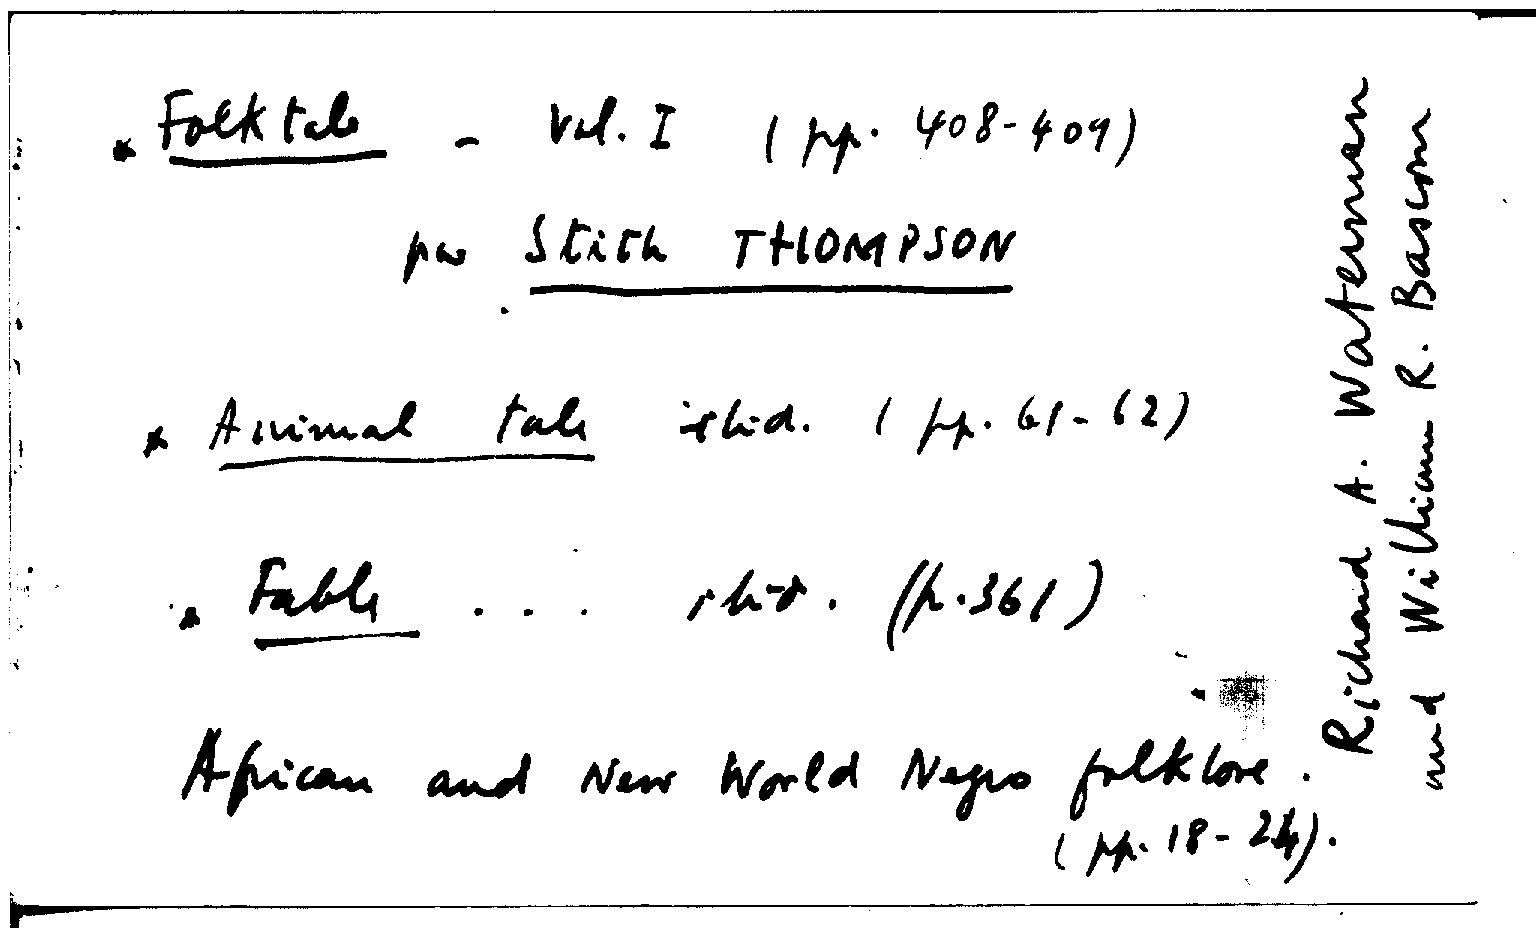 * Folktale - Vol. I (pp. 408-409)
par Stith THOMPSON
* Animal tale ibid. (pp. 61-62)
* Fable ... ibid. (p. 361)
African and New World Negro folklore.
(pp. 18-24).
Richard A. Waterman
and William R. Bascom